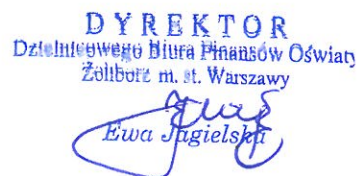 DYREKTOR
Dzielnicowego Biura Finansów Oświaty
Żoliborz m. st. Warszawy
Ewa Jagielska